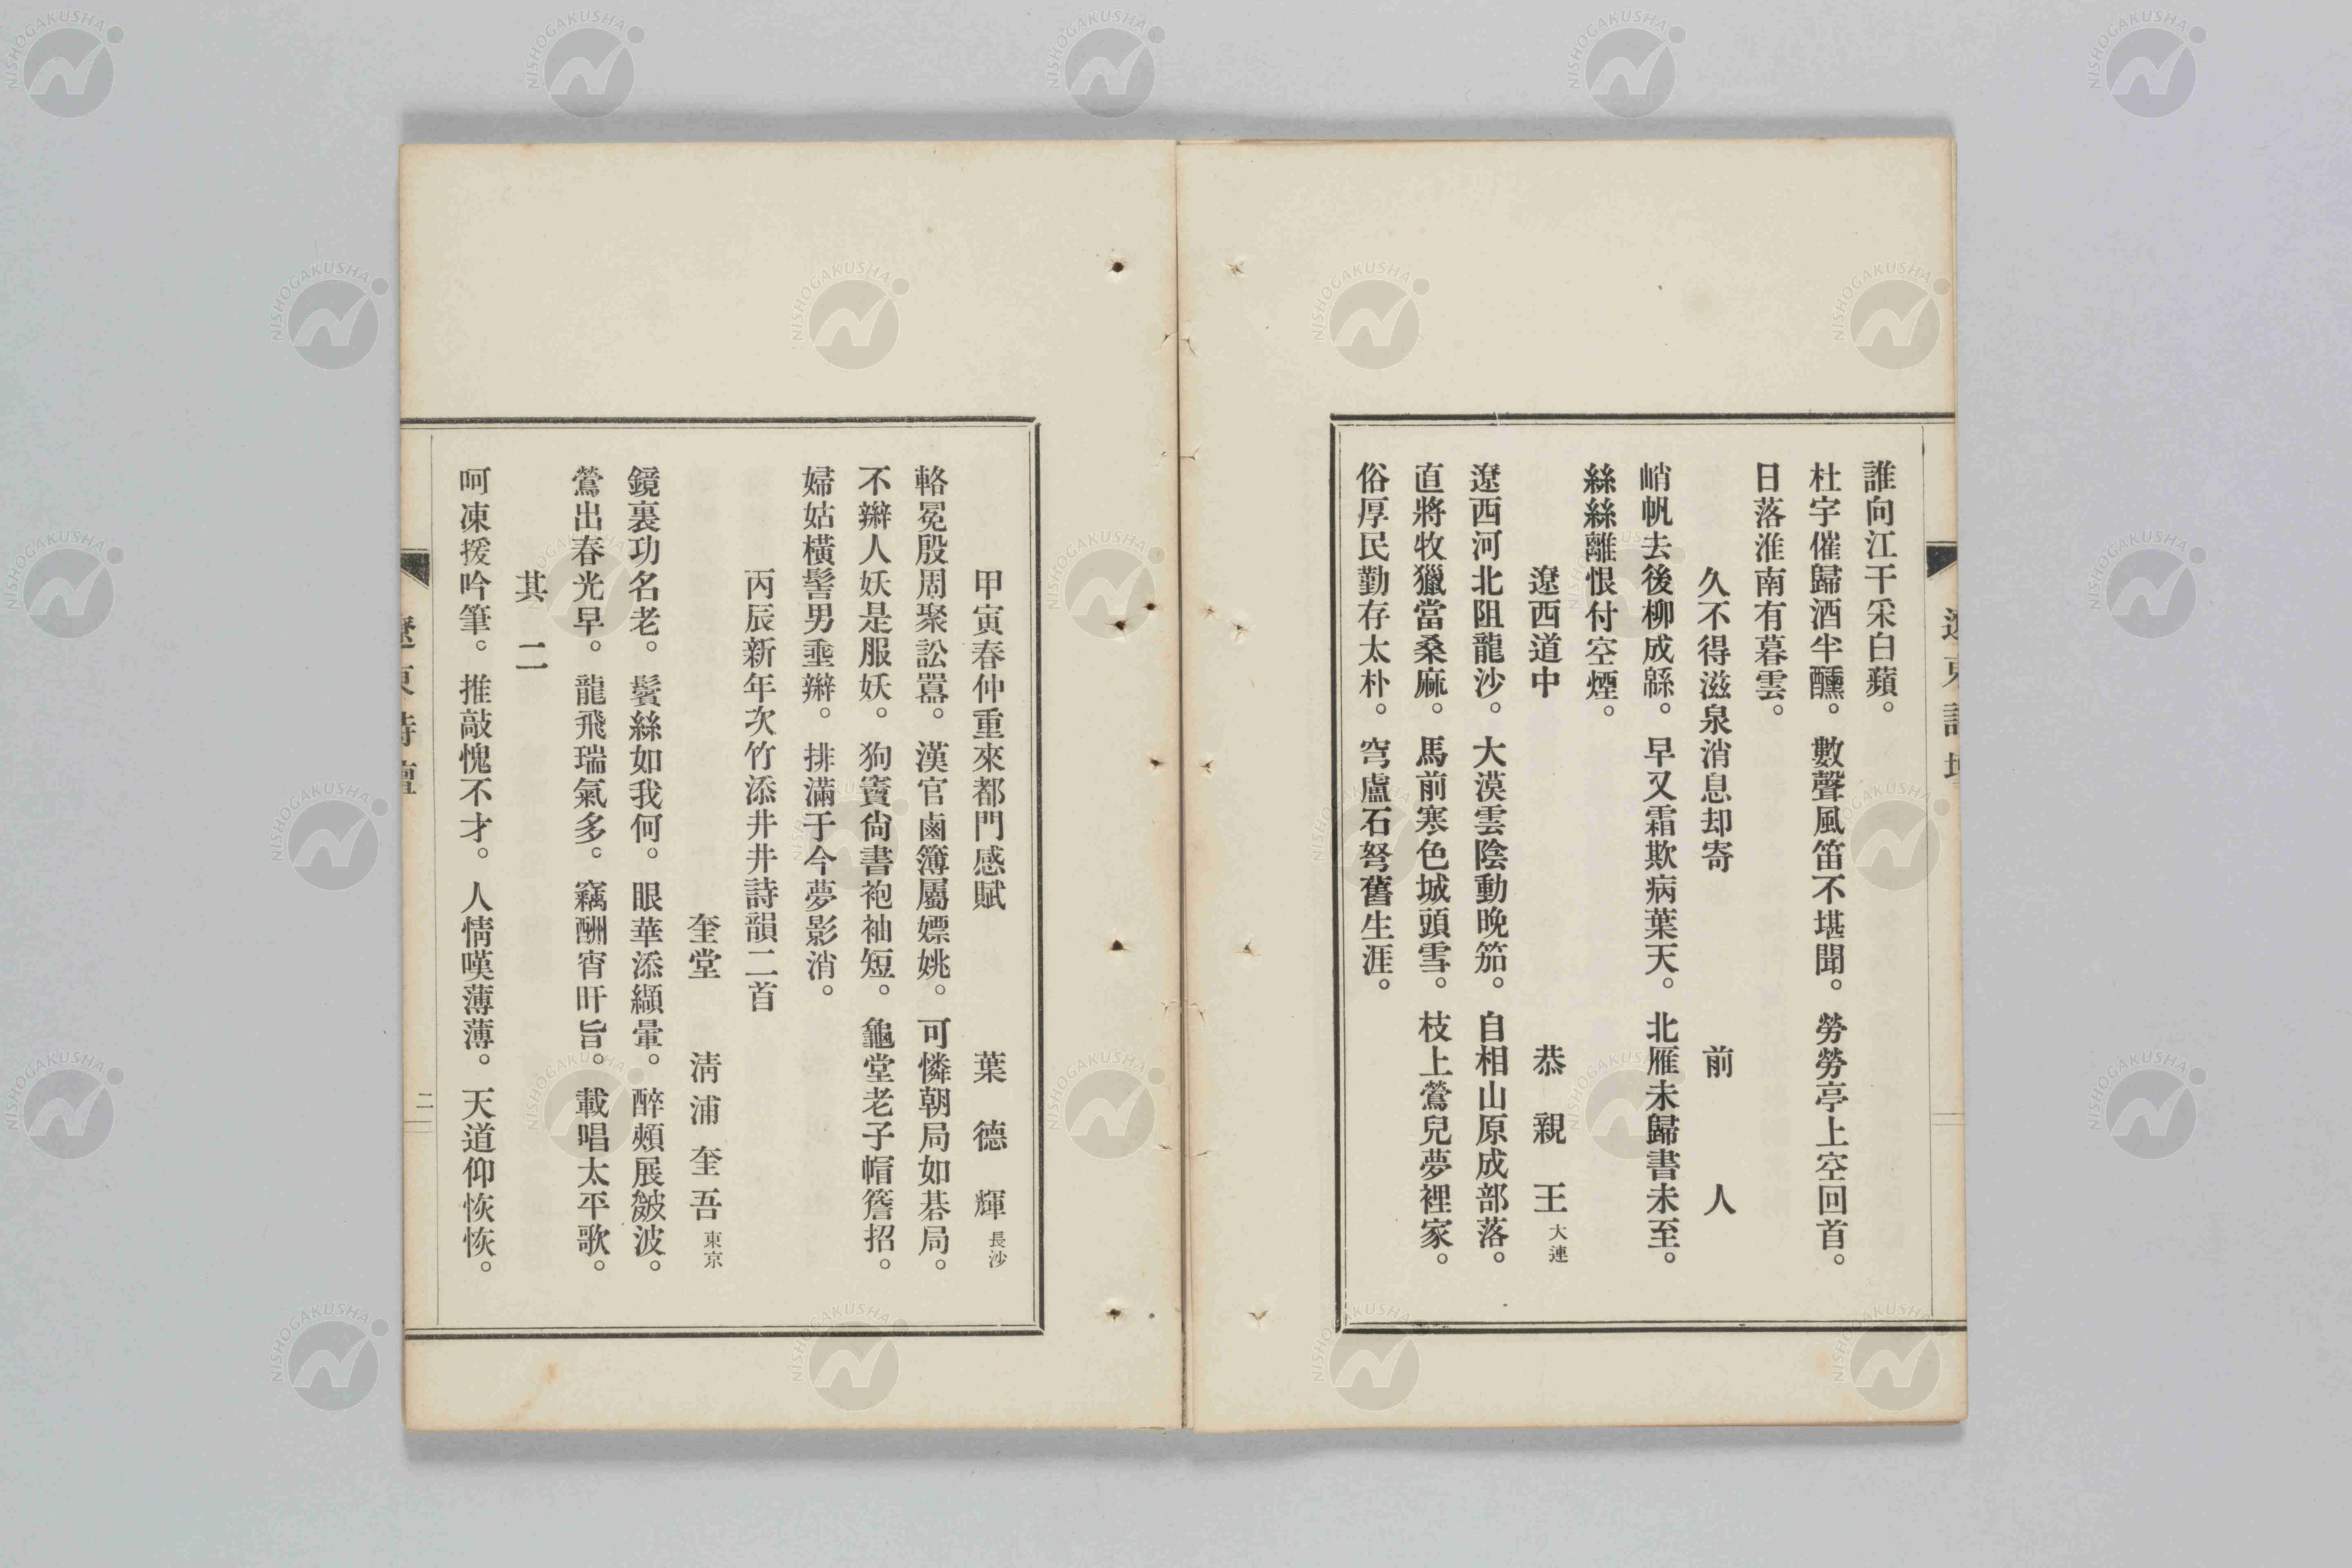 誰向江干采白蘋。
杜宇催歸酒半醺。數聲風笛不堪聞。勞勞亭上空回首。
日落淮南有暮雲。
久不得滋泉消息却寄 前人
峭帆去後柳成緜。早又霜欺病葉天。北雁未歸書未至。
絲絲離恨付空煙。
遼西道中 恭親王 大連
遼西河北阻龍沙。大漠雲陰動晚笳。自相山原成部落。
直將牧獵當桑麻。馬前寒色城頭雪。枝上鶯兒夢裡家。
俗厚民勤存太朴。穹盧石弩舊生涯。
甲寅春仲重來都門感賦 葉德輝 長沙
輅冕殷周聚訟囂。漢官鹵簿屬嫖姚。可憐朝局如棊局。
不辦人妖是服妖。狗竇尙書袍袖短。龜堂老子帽簷招。
婦姑橫髻男垂辮。排滿于今夢影消。
丙辰新年次竹添井井詩韻二首
奎堂 淸浦奎吾 東京
鏡裏功名老。鬢絲如我何。眼華添纈暈。醉頰展皴波。
鶯出春光早。龍飛瑞氣多。竊酬宵旰旨。載唱太平歌。
其二
呵凍援吟筆。推敲愧不才。人情嘆薄薄。天道仰恢恢。
遼東詩壇
二
NISHOGAKUSHA